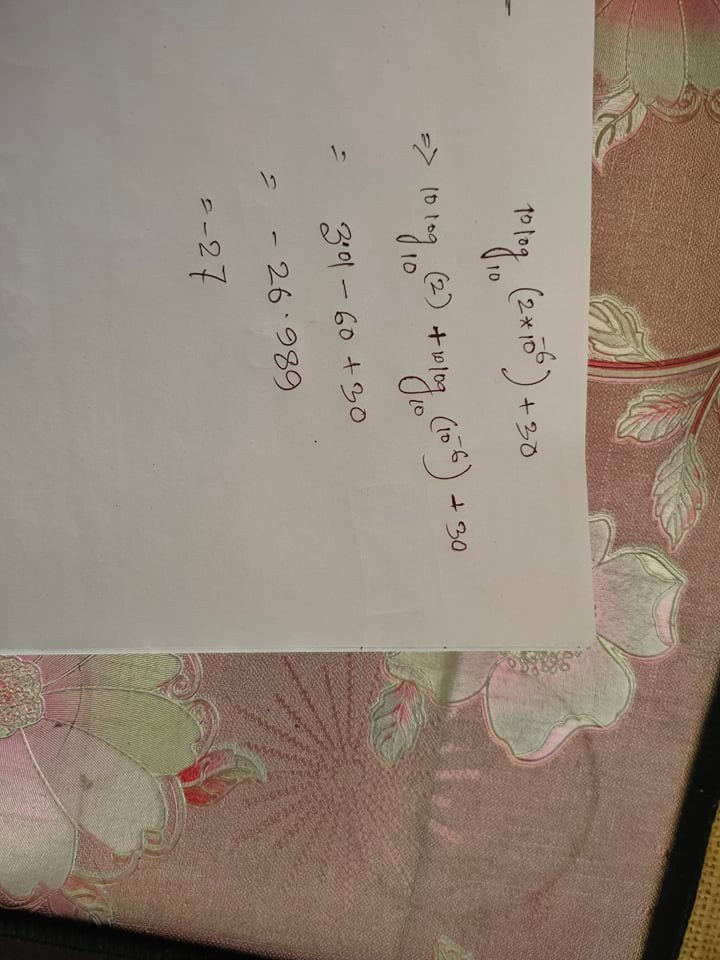 10 log₁₀ (2*10⁻⁶) + 30
=> 10 log₁₀ (2) + 10 log₁₀ (10⁻⁶) + 30
= 3.01 - 60 + 30
= - 26.989
= - 27